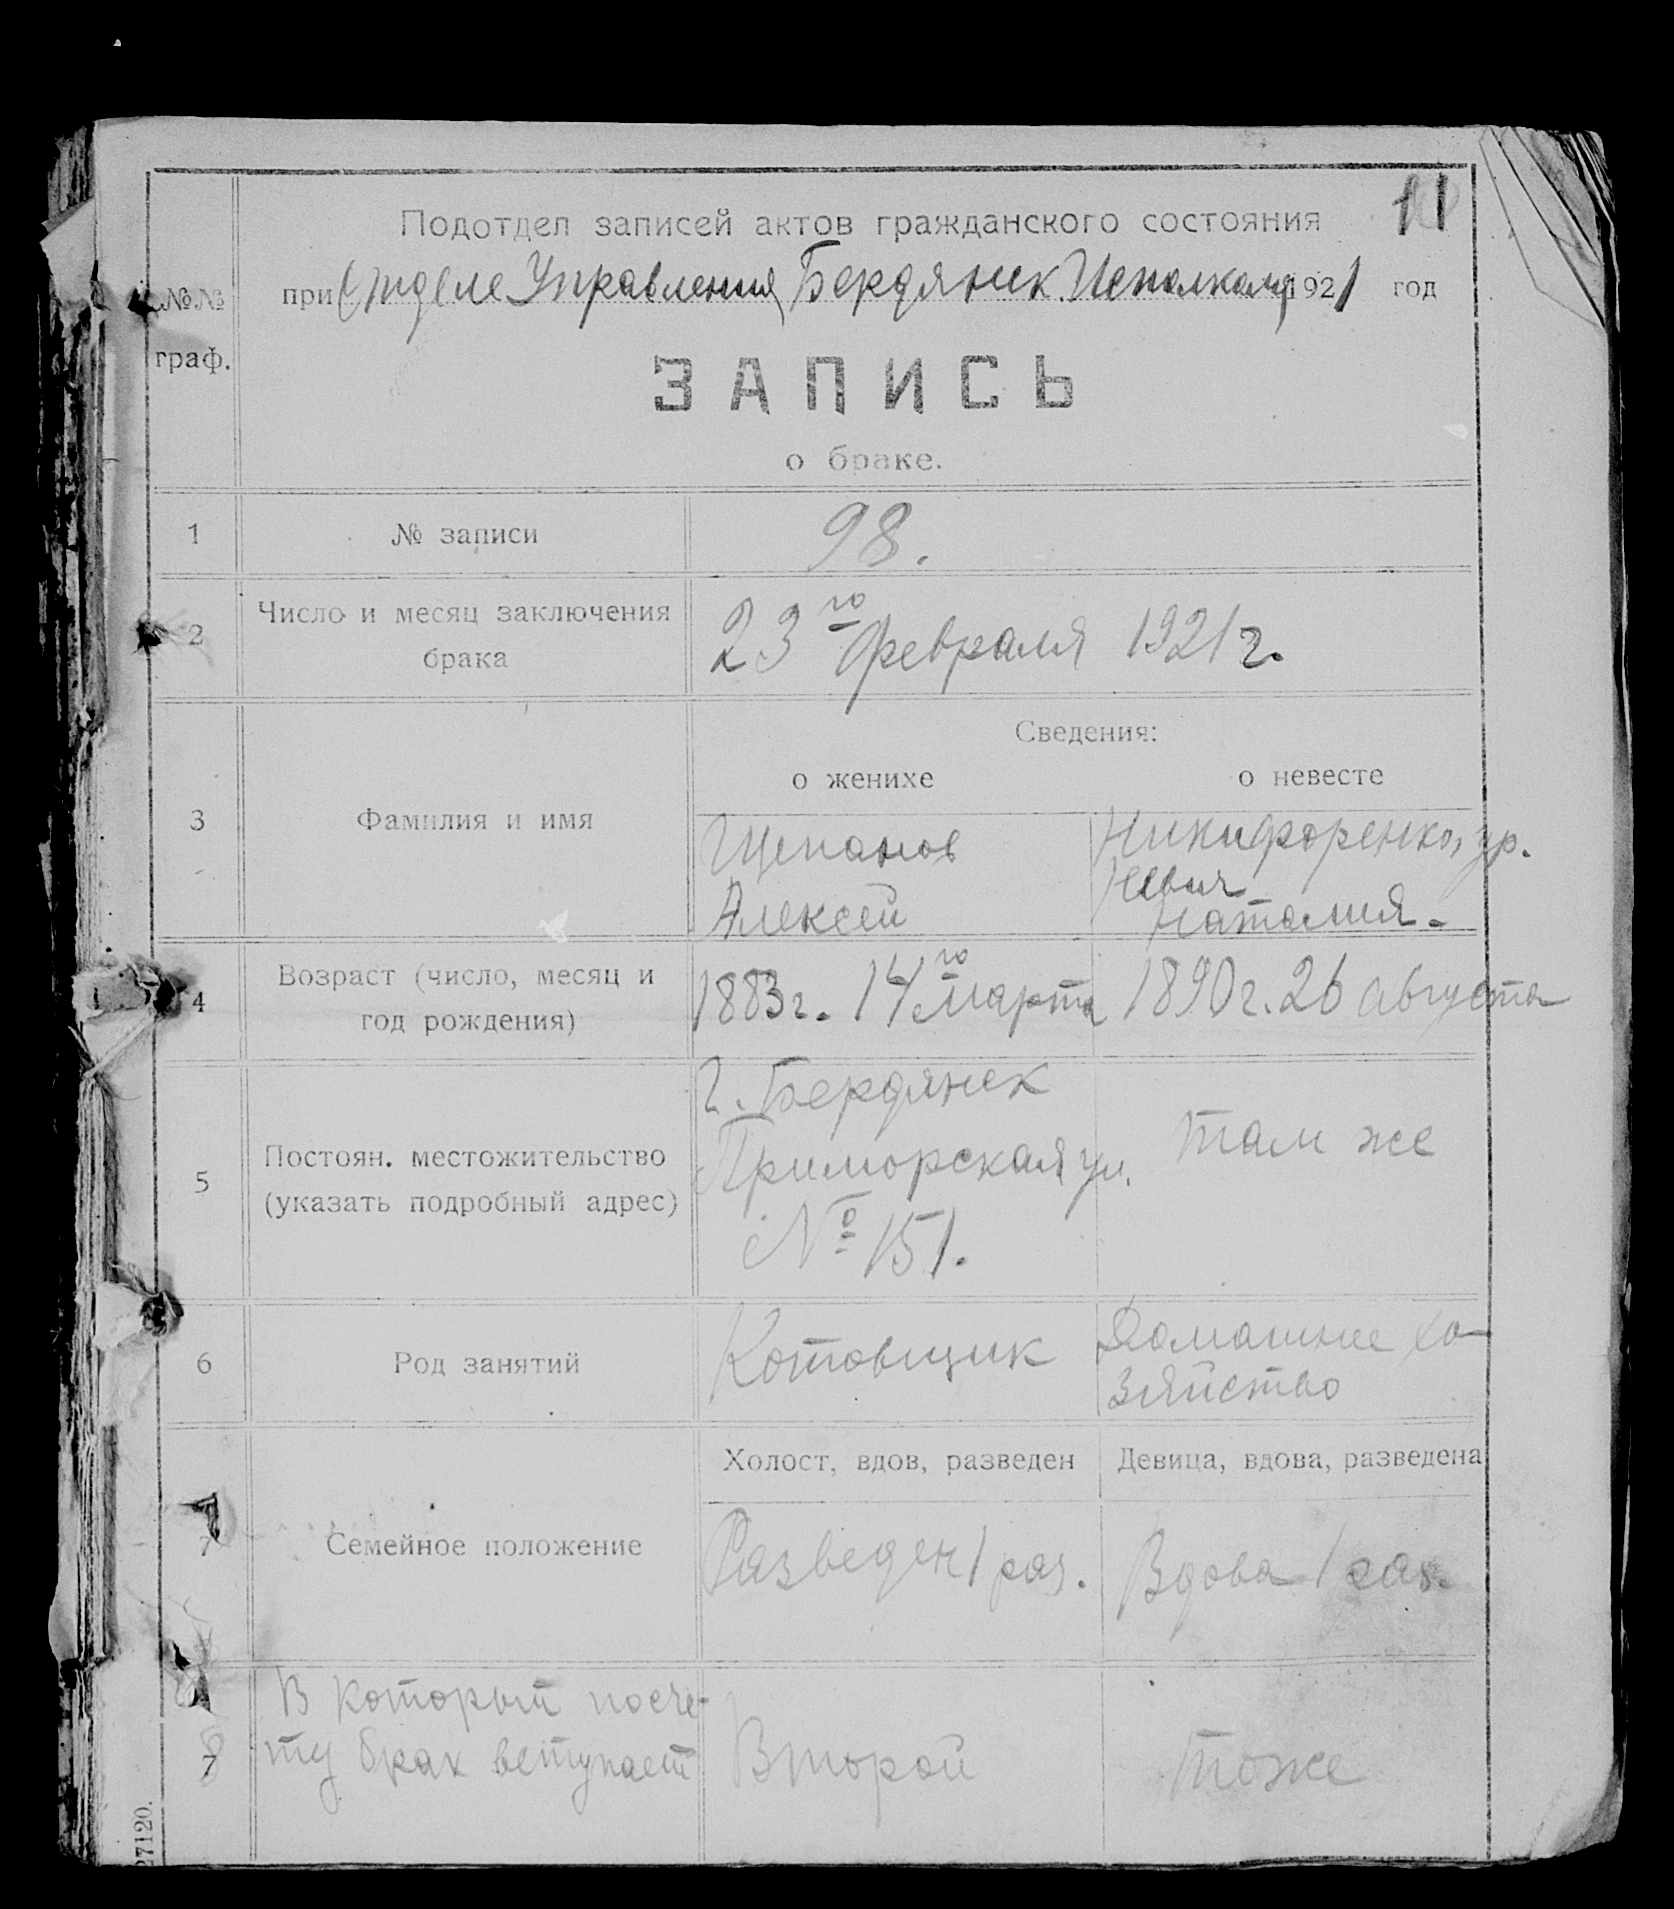 11
Подотдел записей актов гражданского состояния
при Отделе Управления Бердянск. Исполкома 1921 год
№№
граф.
ЗАПИСЬ
о браке.
1 № записи 98.
2 Число и месяц заключения 23го февраля 1921 г.
брака
Сведения:
о женихе о невесте
3 Фамилия и имя Щепанов Никифоренко, ур.
Алексей Наталия.
4 Возраст (число, месяц и 1883 г. 14го марта 1890 г. 26 августа
год рождения)
г. Бердянск
5 Постоян. местожительство Приморская ул. там же
(указать подробный адрес) № 151.
6 Род занятий Котовщик Домашнее хо-
зяйство
Холост, вдов, разведен Девица, вдова, разведена
7 Семейное положение Разведен 1 раз. Вдова 1 раз.
В который посче-
7 ту брак вступает Второй тоже
27120.